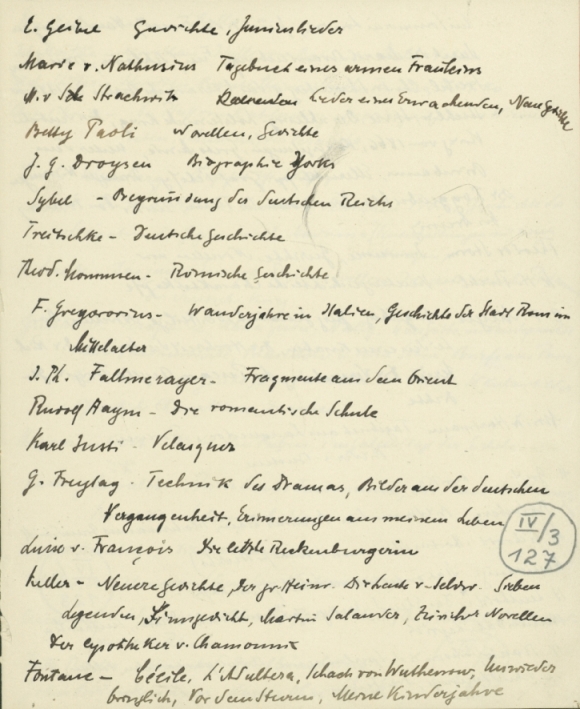 E. Geibel Gedichte, Juniuslieder
Marie v. Nathusius Tagebuch eines armen Fräuleins
Strachwitz Lieder eines Erwachenden, Neue Gedichte
Betty Paoli Novellen, Gedichte
J. G. Droysen Biographie Yorks
Sybel - Begründung des deutschen Reichs
Treitschke - Deutsche Geschichte
Theod. Mommsen - Römische Geschichte
F. Gregorovius - Wanderjahre in Italien, Geschichte der Stadt Rom im
Mittelalter
J. Ph. Fallmerayer - Fragmente aus dem Orient
Rudolf Haym - Die romantische Schule
Karl Justi - Velasquez
G. Freytag - Technik des Dramas, Bilder aus der deutschen
Vergangenheit, Erinnerungen aus meinem Leben
IV/3
127
Luise v. François Die letzte Reckenburgerin
Keller - Neuere Gedichte, Der gr. Heinr. Die Leute v. Seldw. Sieben
Legenden, Sinngedicht, Martin Salander, Züricher Novellen
Der Apotheker v. Chamounix
Fontane - Cécile, L'Adultera, Schach von Wuthenow, Unwieder
bringlich, Vor dem Sturm, Meine Kinderjahre